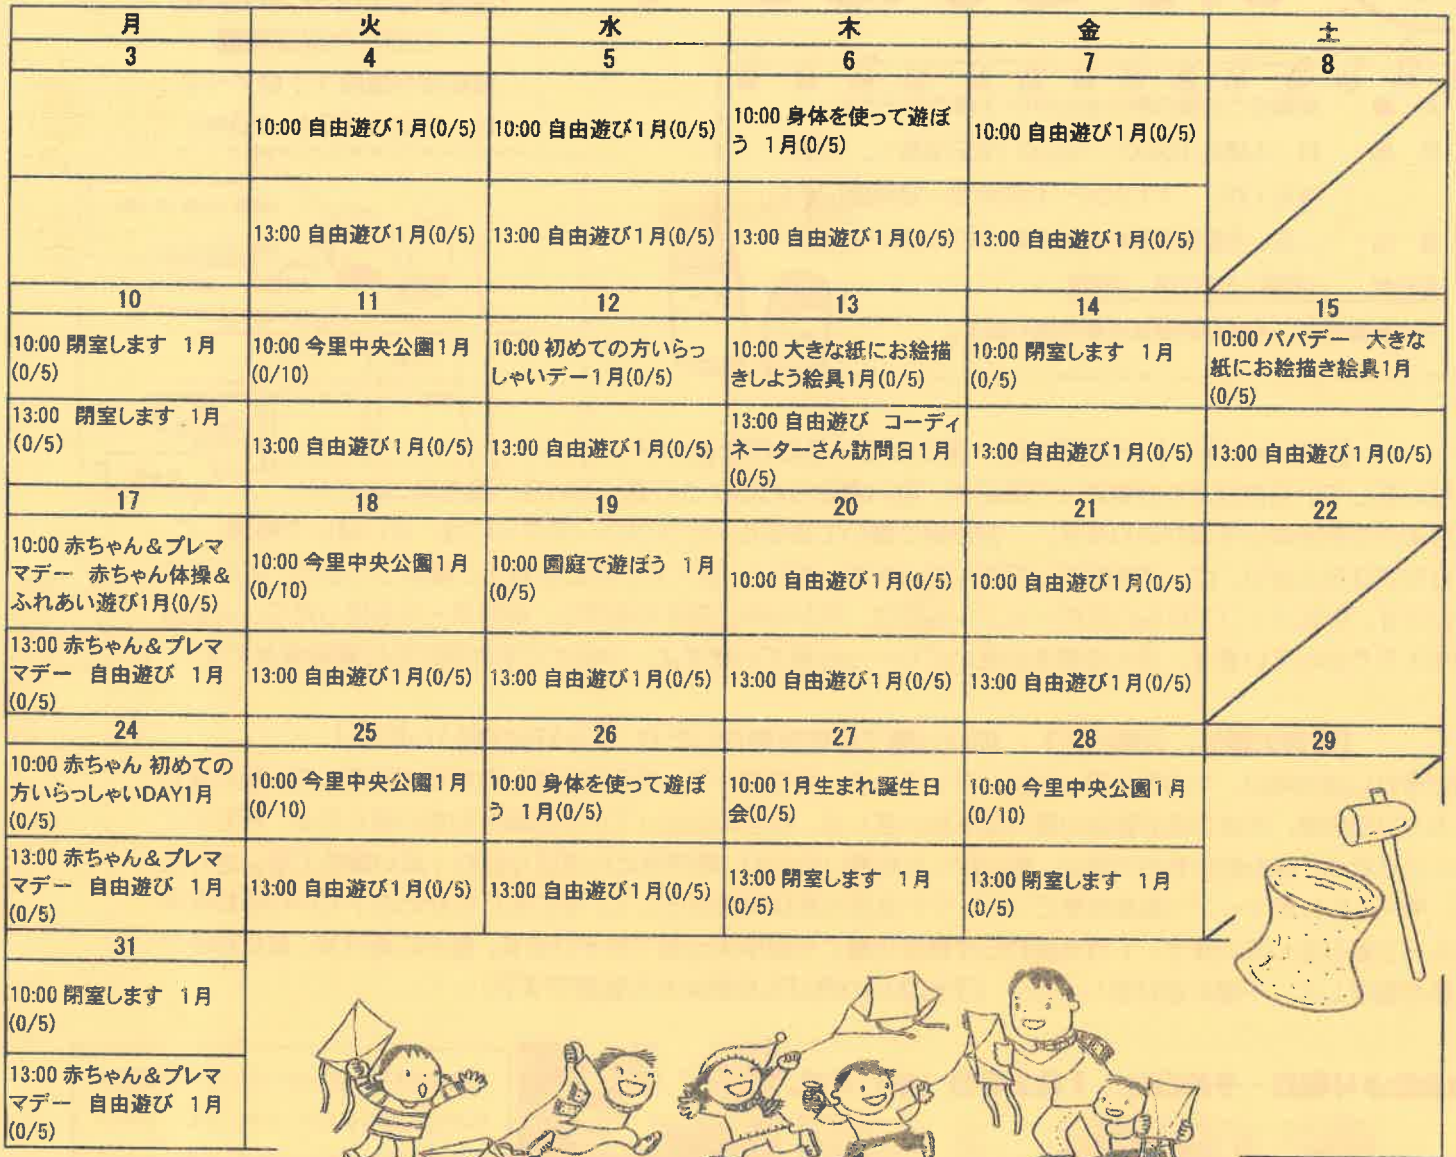 月 火 水 木 金 土
3 4 5 6 7 8
10:00 自由遊び1月(0/5)
10:00 自由遊び1月(0/5)
10:00 身体を使って遊ぼ
う 1月(0/5)
10:00 自由遊び1月(0/5)
13:00 自由遊び1月(0/5)
13:00 自由遊び1月(0/5)
13:00 自由遊び1月(0/5)
13:00 自由遊び1月(0/5)
10 11 12 13 14 15
10:00 閉室します 1月
(0/5)
10:00 今里中央公園1月
(0/10)
10:00 初めての方いらっ
しゃいデー1月(0/5)
10:00 大きな紙にお絵描
きしよう絵具1月(0/5)
10:00 閉室します 1月
(0/5)
10:00 パパデー 大きな
紙にお絵描き絵具1月
(0/5)
13:00 閉室します 1月
(0/5)
13:00 自由遊び1月(0/5)
13:00 自由遊び1月(0/5)
13:00 自由遊び コーディ
ネーターさん訪問日1月
(0/5)
13:00 自由遊び1月(0/5)
13:00 自由遊び1月(0/5)
17 18 19 20 21 22
10:00 赤ちゃん&プレマ
マデー 赤ちゃん体操&
ふれあい遊び1月(0/5)
10:00 今里中央公園1月
(0/10)
10:00 園庭で遊ぼう 1月
(0/5)
10:00 自由遊び1月(0/5)
10:00 自由遊び1月(0/5)
13:00 赤ちゃん&プレマ
マデー 自由遊び 1月
(0/5)
13:00 自由遊び1月(0/5)
13:00 自由遊び1月(0/5)
13:00 自由遊び1月(0/5)
13:00 自由遊び1月(0/5)
24 25 26 27 28 29
10:00 赤ちゃん 初めての
方いらっしゃいDAY1月
(0/5)
10:00 今里中央公園1月
(0/10)
10:00 身体を使って遊ぼ
う 1月(0/5)
10:00 1月生まれ誕生日
会(0/5)
10:00 今里中央公園1月
(0/10)
13:00 赤ちゃん&プレマ
マデー 自由遊び 1月
(0/5)
13:00 自由遊び1月(0/5)
13:00 自由遊び1月(0/5)
13:00 閉室します 1月
(0/5)
13:00 閉室します 1月
(0/5)
31
10:00 閉室します 1月
(0/5)
13:00 赤ちゃん&プレマ
マデー 自由遊び 1月
(0/5)